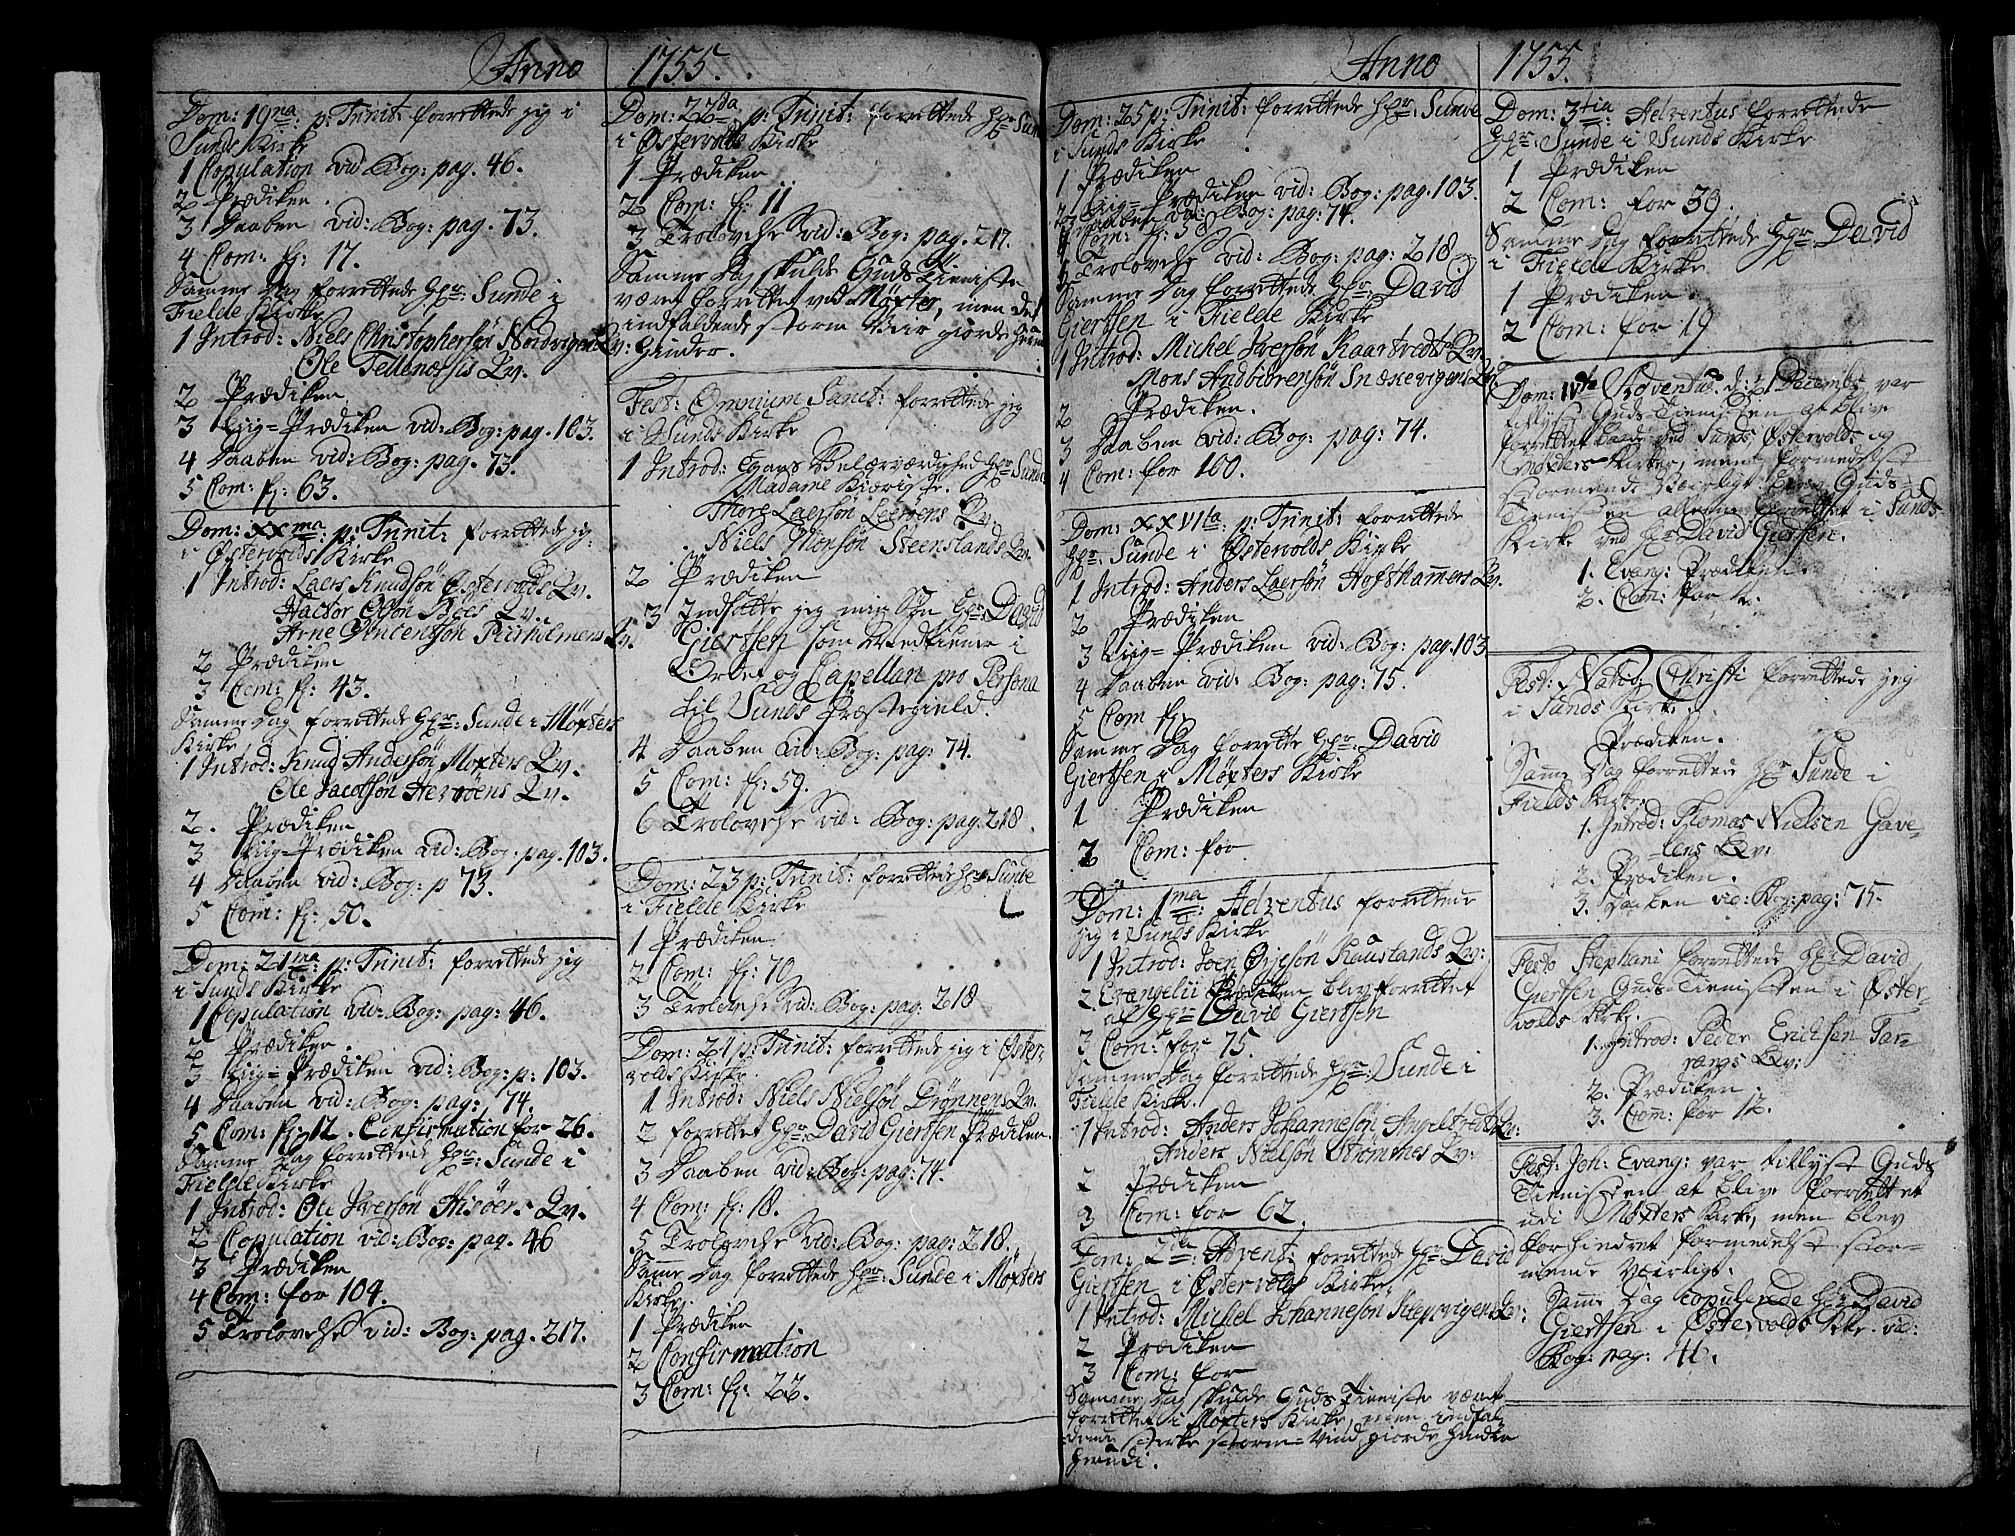 Anno 1755.
Dom: 19na p: Trinit: forrettede jeg i
Sunds Kirke
1 Copulation vid Bog: pag. 46.
2 Prædiken.
3 Daaben vid: Bog: pag. 73.
4 Com: f: 17.
Samme Dag forrettede Hr: Sunde i
Fielde Kirke
1 Introd: Niels Christophersøn Nordvigens Qv:
Ole Tellnæssis Qv.
2 Prædiken
3 Liig=Prædiken vid: Bog: pag. 103.
4 Daaben vid: Bog: pag. 73.
5 Com: f: 63.
Dom: XXma p: Trinit: forrettede jeg
i Østervolds Kirke
1 Introd: Laers Knudsøn Østervolds Qv.
Hactor Olsøn Boes Qv.
Arne Qv.
2 Prædiken
3 Com: f: 43.
Samme Dag forrettede Hr: Sunde i Møxters
Kirke
1 Introd: Knud Andersøn Moxters Qv.
Ole Jacobsøn Herrøens Qv.
2. Prædiken
3 Liig=Prædiken vid: Bog: pag. 103.
4 Daaben vid: Bog: p 73.
5 Com: f: 50.
Dom: 21ma p: Trinit: forrettede jeg
i Sunds Kirke
1 Copulation vid: Bog: pag: 46.
2 Prædiken.
3 Liig=Prædiken vid: Bog: p: 103.
4 Daaben vid: Bog: pag: 74.
5. Com: f: 12. Confirmation for 26.
Samme Dag forrettede Hr: Sunde i
Fielde Kirke
1 Introd: Ole Iversøn Hisøers Qv.
2 Copulation vid: Bog: pag. 46
3 Prædiken
4 Com: for 104.
5 Trolovelse vid: Bog: pag. 217.
Dom: 22da p: Trinit: forrettede Hr Sunde
i Østervolds Kirke
1 Prædiken
2 Com: f: 11
3 Trolovelse vid: Bog: pag. 217.
Samme Dag skulde Guds Tieniste
været forrettet ved Møxter, men det
indfaldende storm Veir giorde herudi
Hinder.
Fest: Omnium Sanct: forrettede jeg
i Sunds Kirke
1 Introd: Hans Velærværdighed Hr: Sunde
Madame Kiæriste.
Thore Laersøn Leerens Qv.
Niels Steenslands Qv.
2 Prædiken
3 Indsatte jeg min Søn Hr: David
Giertsen som Medtiener i
Ordet og Capellan pro Persona
til Sunds Præstegield.
4 Daaben vid: Bog: pag: 74.
5 Com: f: 59.
6 Trolovelse vid: Bog: pag. 218.
Dom: 23 p: Trinit: forrettede Hr: Sunde
i Fielde Kirke
1 Prædiken
2 Com: f: 70
3 Trolovelse vid: Bog: pag: 218
Dom: 24 p: Trinit: forrettede jeg i Øster-
volds Kirke
1 Introd: Niels Nielsøn Drønnens Qv.
2 forrettet Hr: David Giertsen Prædiken.
3 Daaben vid: Bog: pag: 74.
4 Com: f: 18.
5 Trolovelse vid: Bog: pag: 218.
Samme Dag forrettede Hr: Sunde i Møxters
Kirke.
1 Prædiken
2 Confirmation
3 Com: f: 22.
Anno 1755.
Dom: 25 p: Trinit: forrettede Hr: Sunde
i Sunds Kirke
1 Prædiken
2 Liig=Prædiken vid: Bog: pag. 103.
3 Daaben vid: Bog: pag: 74.
4 Com: f: 58
5 Trolovelse vid: Bog: pag: 218
Samme Dag forrettede Hr: David
Giertsen i Fielde Kirke
1 Introd: Michel Iversøn Kaartvedts Qv:
Mons Andbiørensøn Snækevigens Qv.
2 Prædiken.
3 Daaben vid: Bog: pag: 74.
4 Com: for 100.
Dom: XXVIta p: Trinit: forrettede
Hr: Sunde i Østervolds Kirke
1 Introd: Anders Laersøn Hofshamers Qv.
2 Prædiken
3 Liig=Prædiken vid: Bog: pag. 103
4 Daaben vid: Bog: pag: 75.
5 Com f:
Samme Dag forrette Hr: David
Giertsen i Møxters Kirke
1 Prædiken
2 Com: for
Dom: 1ma: Adventus forrettede
jeg i Sunds Kirke
1 Introd: Joen Øyesøn Kaustlands Qv:
2 Evangelii Prædiken blev forrettet
af Hr: David Giertsen
3 Com: for 75.
Samme Dag forrettede Hr: Sunde i
Fielde Kirke.
1 Introd: Anders Johannesøn Angeltvedts Qv:
Anders Nielsøn Strømmes Qv:
2 Prædiken
3 Com: for 62.
Dom: 2da: Advent: forrettede Hr: David
Giertsen i Østervolds Kirke
1 Introd: Michel Johannesøn Qv:
2 Prædiken
3 Com: for
Samme Dag skulde Guds Tieniste været
forrettet i Møxters Kirke, men indfal-
dende sterke storm=Vind giorde Hinder
herudi.
Dom: 3tia: Adventus forrettede
Hr: Sunde i Sunds Kirke
1 Prædiken
2 Com: for 39.
Samme Dag forrettede Hr: David
i Fielde Kirke
1 Prædiken.
2 Com: for 19
Dom: IVta Adventus. d: 21 Decembr var
tillyst Guds Tienisten at blive
forrettet baade ved Sunds, Østervolds og
Møxters Kirker, men formedelst
stormende Veirligt blev Guds=
Tienisten allene forrettet i Sunds
Kirke ved Hr David Giertsen.
1. Evang: Prædiken.
2. Com: for
Fest: Nativ: Christi forrettede jeg
i Sunds Kirke.
Prædiken.
Samme Dag forrettede Hr Sunde i
Fields Kirke.
1. Introd: Thomas Nielsen Gave-
lens Qv:
2. Prædiken.
3. Daaben vid: Bog: pag: 75.
Festo Stephani forrettede Hr: David
Giertsen Guds Tienisten i Øster-
volds Kirke.
1. Introd: Peder Erichsen Tor-
rangs Qv:
2. Prædiken.
3. Com: for 12.
Fest: Joh: Evang: var tillyst Guds
Tienisten at blive forrettet
udi Møxters Kirke, men blev
forhindret formedelst stor-
mende Veirligt.
Samme Dag copulerede Hr David
Giertsen i Østervolds Kirke. vid:
Bog: pag: 46.